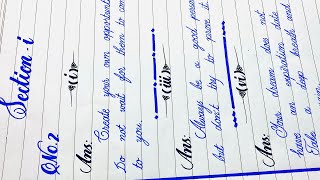 Section-i
Q No. 2
(i)
Ans:
Create your own opportunit
Do not wait for them to com
to you.
(iii)
Ans:
Always be a good person
but don't try to prove it.
(v)
Ans:
Your dream does not
have an expiration
deep breath and